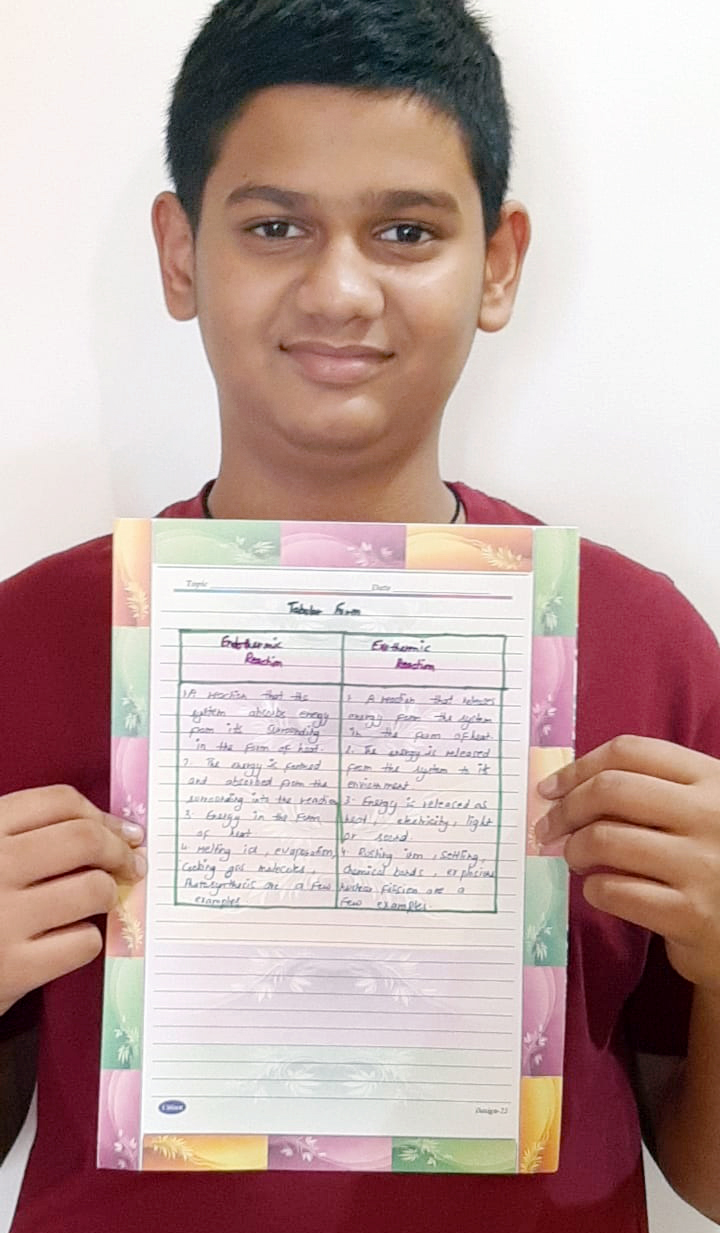 Topic Date
Tabular Form
Endothermic
Reaction
1. A reaction that the
system absorbs energy
from its surrounding
in the form of heat.
2. The energy is
and absorbed from the
surrounding into the reaction
3. Energy in the form
of heat
4. Melting ice, evaporation,
Cooking gas molecules,
Photosynthesis are a few
examples
Exothermic
Reaction
1. A reaction that releases
energy from the system
in the form of heat.
2. The energy is released
from the system to its
3. Energy is released as
heat, electricity, light
or sound.
4. Rusting iron, settling,
chemical bonds, explosions
Nuclear fission are a
few examples.
Design-22